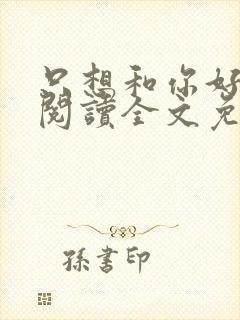 只想和你好
閱讀全文免
孫書印